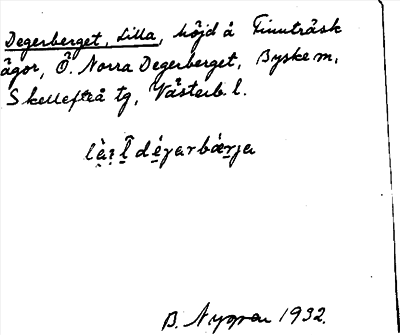 Degerberget, Lilla, höjd å Finnträsk
ägor, Ö. Norra Degerberget, Byske sn,
Skellefteå tg, Västerb. l.
B. Nygren 1932.